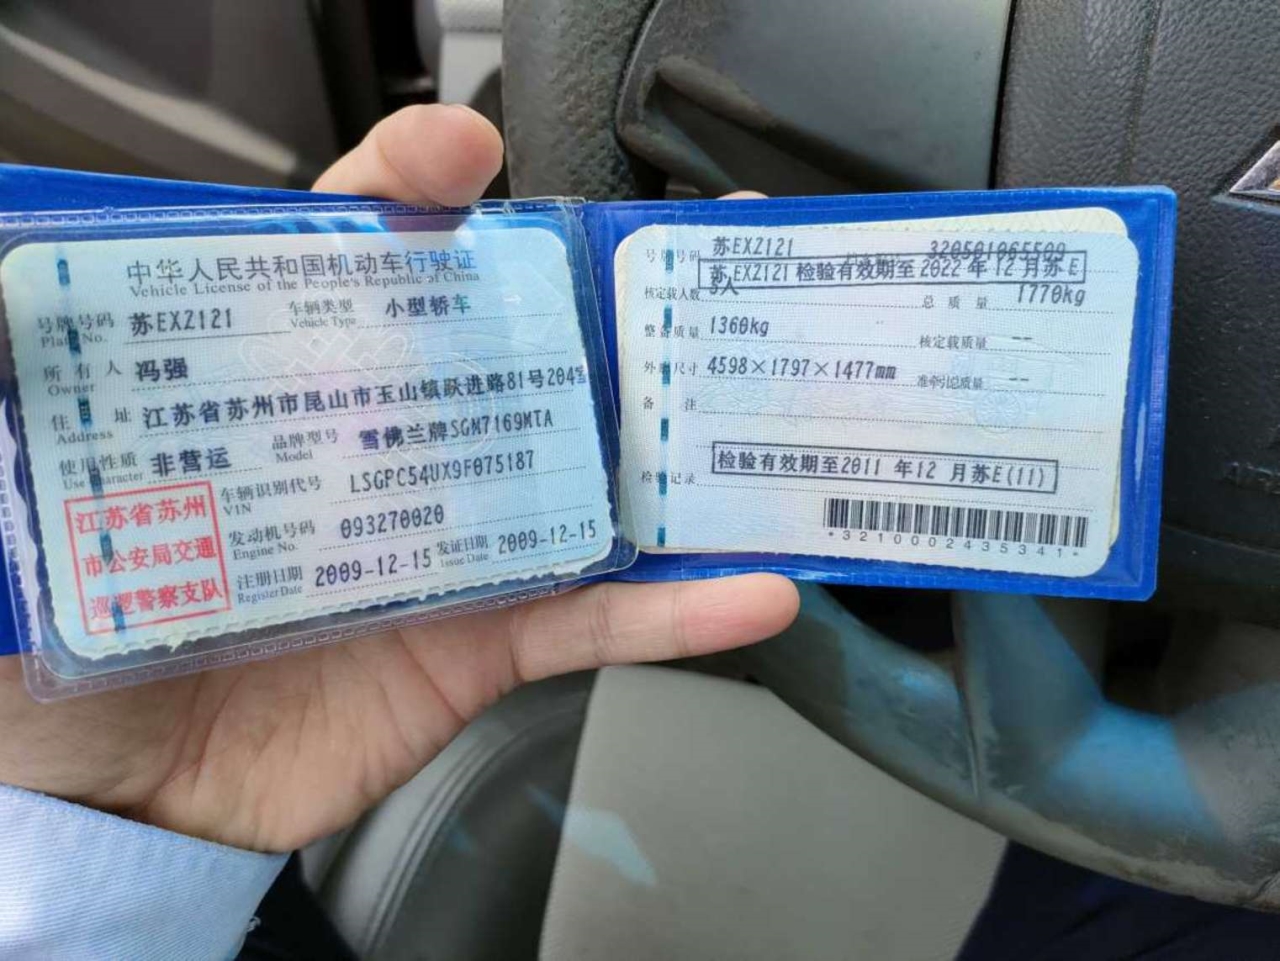 中华人民共和国机动车行驶证
Vehicle License of the People's Republic of China
号牌号码 苏EXZ121 车辆类型 小型轿车
Plate No. Vehicle Type
所有人 冯强
Owner
住址 江苏省苏州市昆山市玉山镇跃进路81号204室
Address
使用性质 非营运 品牌型号 雪佛兰牌SGM7169MTA
Use Character Model
江苏省苏州
市公安局交通
巡逻警察支队
车辆识别代号 LSGPC54UX9F075187
VIN
发动机号码 093270020
Engine No.
注册日期 2009-12-15 发证日期 2009-12-15
Register Date Issue Date
号牌号码 苏EXZ121 320501065509
苏EXZ121 检验有效期至 2022 年 12 月苏E
核定载人数 5人 总质量 1770kg
整备质量 1360kg 核定载质量 --
外廓尺寸 4598×1797×1477mm 准牵引总质量 --
备注
检验有效期至2011 年12 月苏E(11)
检验记录
*3210002435341*